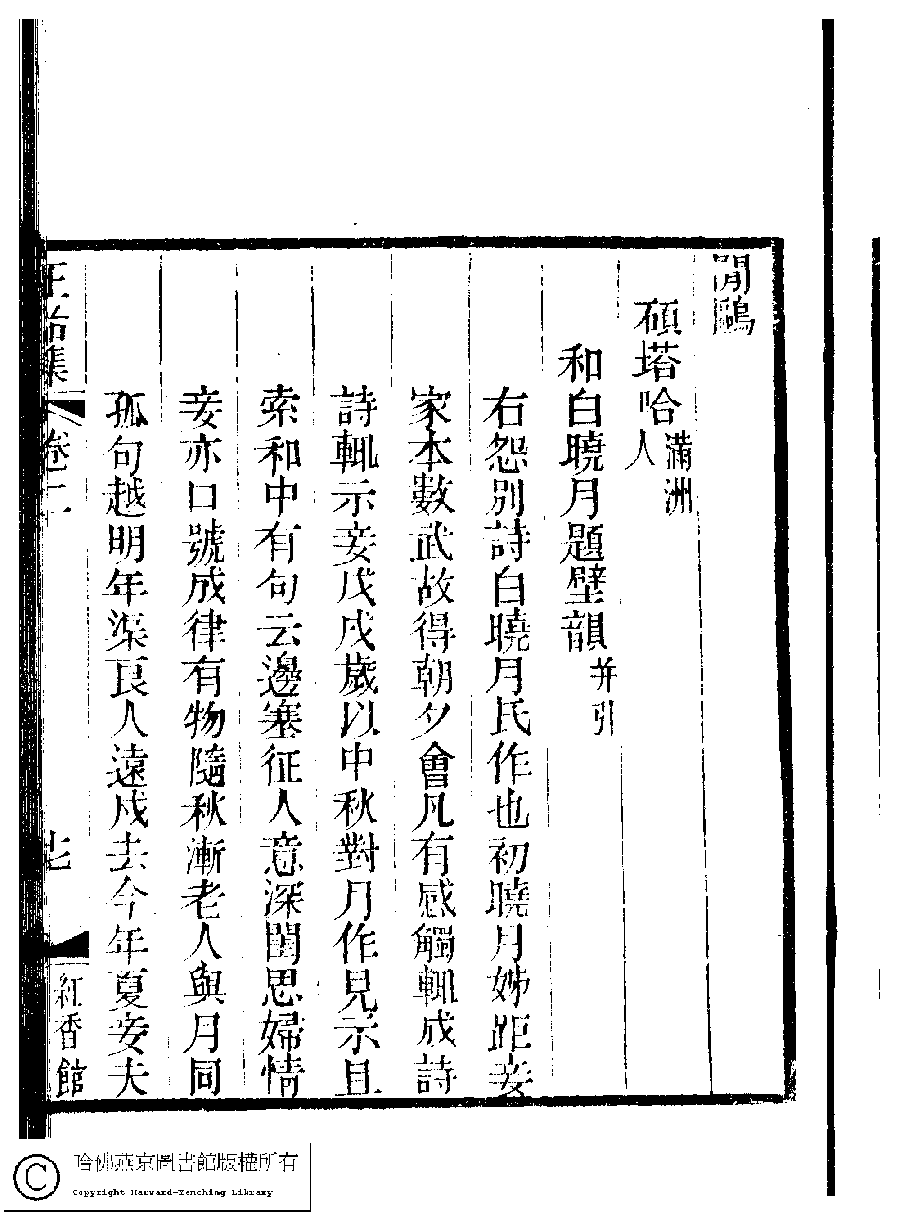 閒鷗
碩塔哈滿洲人
和白曉月題壁韻并引
右怨別詩白曉月氏作也初曉月姊距妾
家本數武故得朝夕會凡有感觸輒成詩
詩輒示妾戊戌歲以中秋對月作見示且
索和中有句云邊塞征人意深閨思婦情
妾亦口號成律有物隨秋漸老人與月同
孤句越明年渠良人遠戍去今年夏妾夫
正始集 卷二 七 紅香館
哈佛燕京圖書館版權所有
Copyright Harvard-Yenching Library